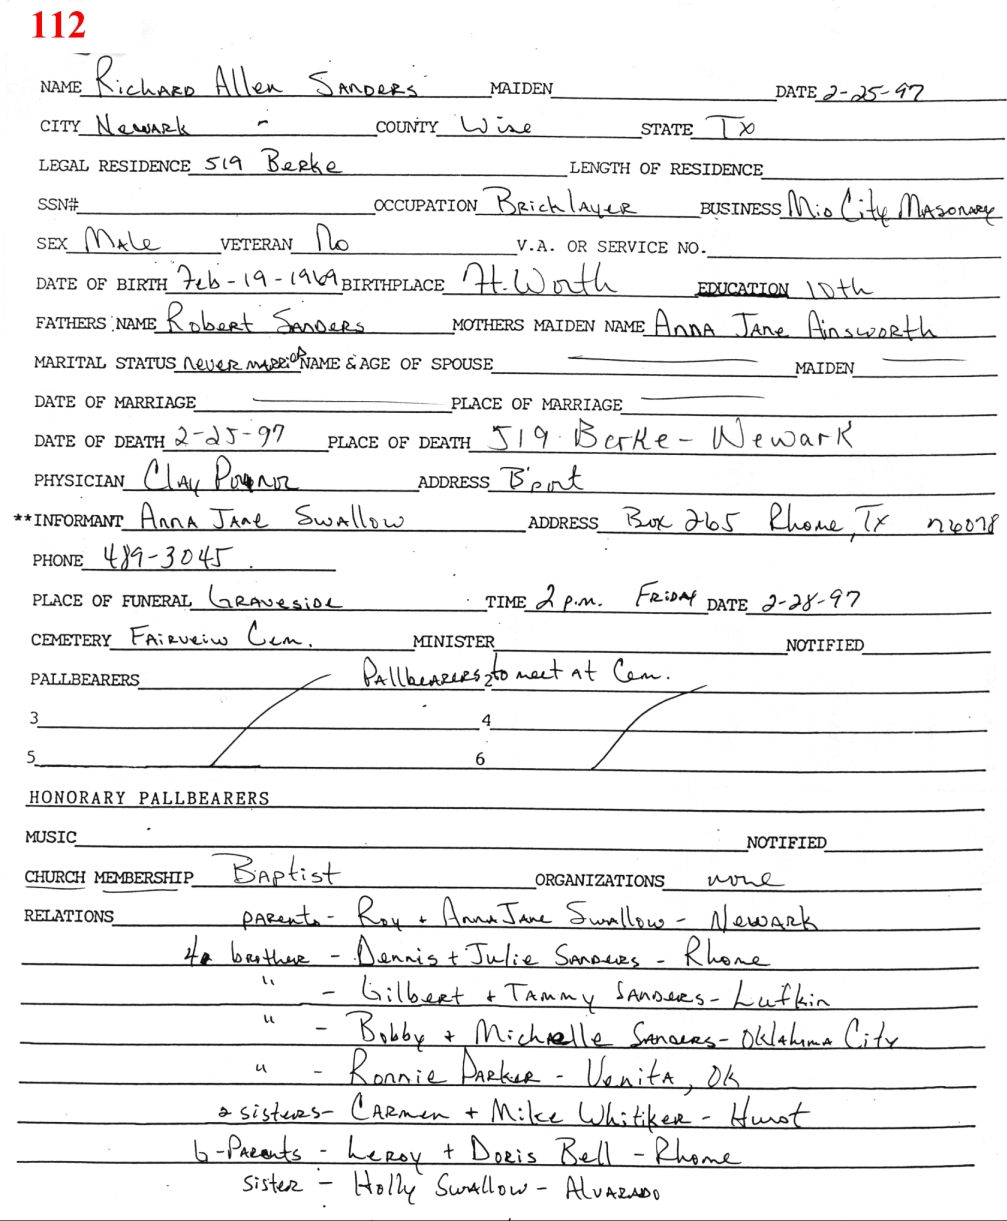 112
NAME Richard Allen Sanders MAIDEN DATE 2-25-97
CITY Newark - COUNTY Wise STATE Tx
LEGAL RESIDENCE 519 Berke LENGTH OF RESIDENCE
SSN# OCCUPATION Bricklayer BUSINESS Mid City Masonary
SEX Male VETERAN No V.A. OR SERVICE NO.
DATE OF BIRTH Feb-19-1969 BIRTHPLACE Ft. Worth EDUCATION 10th
FATHERS NAME Robert Sanders MOTHERS MAIDEN NAME Anna Jane Ainsworth
MARITAL STATUS never married NAME & AGE OF SPOUSE MAIDEN
DATE OF MARRIAGE PLACE OF MARRIAGE
DATE OF DEATH 2-25-97 PLACE OF DEATH 519 Berke - Newark
PHYSICIAN Clay ADDRESS B'port
**INFORMANT Anna Jane Swallow ADDRESS Box 265 Rhome, Tx 76078
PHONE 489-3045
PLACE OF FUNERAL Graveside TIME 2 p.m. Friday DATE 2-28-97
CEMETERY Fairveiw Cem. MINISTER NOTIFIED
PALLBEARERS Pallbearers 2 to meet at Cem.
3 4
5 6
HONORARY PALLBEARERS
MUSIC NOTIFIED
CHURCH MEMBERSHIP Baptist ORGANIZATIONS none
RELATIONS parents - Roy + Anna Jane Swallow - Newark
4 brother - Dennis + Julie Sanders - Rhome
" - Gilbert + Tammy Sanders - Lufkin
" - Bobby + Michaelle Sanders - Oklahoma City
" - Ronnie Parker - Venita, Ok
2 sisters - Carmen + Mike Whitiker - Hurst
G-Parents - Leroy + Doris Bell - Rhome
sister - Holly Swallow - Alvarado